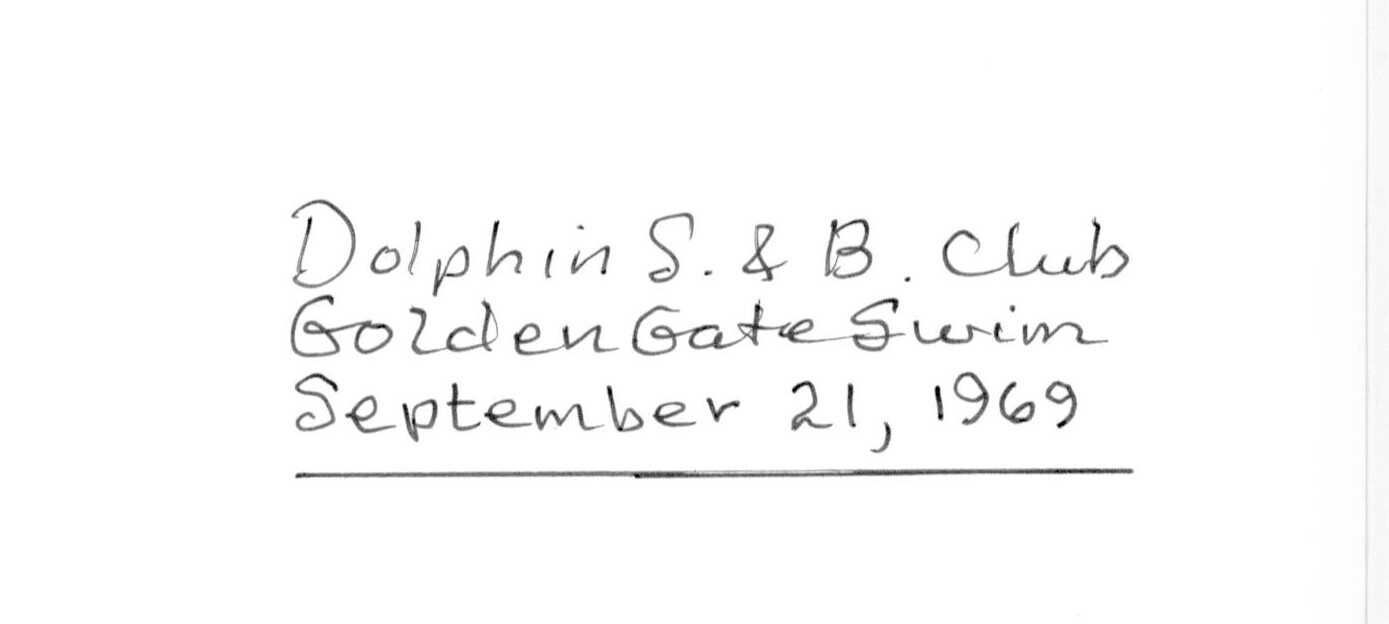 Dolphin S. & B. Club
Golden Gate Swim
September 21, 1969